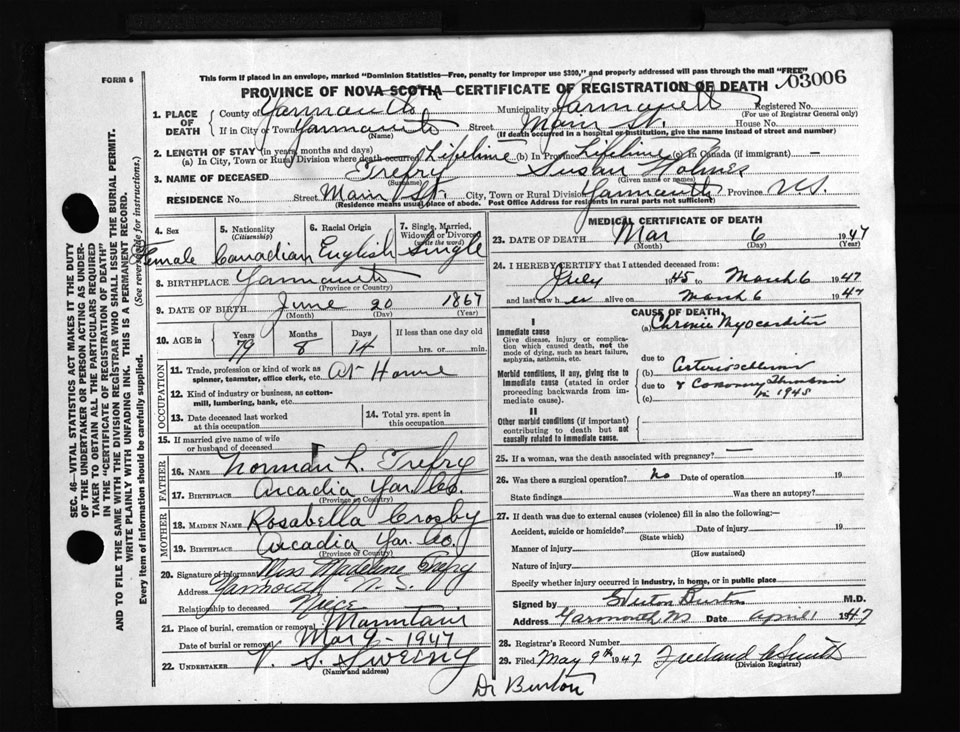 FORM 6
This form if placed in an envelope, marked "Dominion Statistics—Free, penalty for improper use $300," and properly addressed will pass through the mail "FREE"
PROVINCE OF NOVA SCOTIA—CERTIFICATE OF REGISTRATION OF DEATH 03006
1. PLACE OF DEATH County of Yarmouth Municipality of Yarmouth Registered No.
(For use of Registrar General only)
If in City or Town Yarmouth Street Main St. House No.
(Name) (If death occurred in a hospital or institution, give the name instead of street and number)
2. LENGTH OF STAY (in years, months and days)
(a) In City, Town or Rural Division where death occurred Lifetime (b) In Province Lifetime (c) In Canada (if immigrant) —
3. NAME OF DECEASED Trefry Susan Holmes
(Surname) (Given name or names)
RESIDENCE No. Street Main St. City, Town or Rural Division Yarmouth Province N.S.
(Residence means usual place of abode. Post Office Address for residents in rural parts not sufficient)
4. Sex 5. Nationality (Citizenship) 6. Racial Origin 7. Single, Married, Widowed or Divorced (write the word)
Female Canadian English Single
8. BIRTHPLACE Yarmouth
(Province or Country)
9. DATE OF BIRTH June 20 1867
(Month) (Day) (Year)
10. AGE in Years Months Days If less than one day old
79 8 14 hrs. or min.
OCCUPATION
11. Trade, profession or kind of work as spinner, teamster, office clerk, etc. At Home
12. Kind of industry or business, as cotton-mill, lumbering, bank, etc.
13. Date deceased last worked at this occupation
14. Total yrs. spent in this occupation
15. If married give name of wife or husband of deceased
FATHER
16. NAME Norman L. Trefry
17. BIRTHPLACE Arcadia Yar. Co.
(Province or Country)
MOTHER
18. MAIDEN NAME Rosabella Crosby
19. BIRTHPLACE Arcadia Yar. Co.
(Province or Country)
20. Signature of informant Miss Madeline Trefry
Address Yarmouth N. S.
Relationship to deceased Niece
21. Place of burial, cremation or removal Mountain
Date of burial or removal Mar 9 - 1947
22. UNDERTAKER V. S. Sweeny
(Name and address)
MEDICAL CERTIFICATE OF DEATH
23. DATE OF DEATH Mar 6 1947
(Month) (Day) (Year)
24. I HEREBY CERTIFY that I attended deceased from:
July 1945 to March 6 1947
and last saw h er alive on March 6 1947
CAUSE OF DEATH
I
Immediate cause (a) Chronic Myocarditis
Give disease, injury or complication which caused death, not the mode of dying, such as heart failure, asphyxia, asthenia, etc.
due to
Morbid conditions, if any, giving rise to immediate cause (stated in order proceeding backwards from immediate cause).
(b) Arteriosclerosis
due to & Coronary Thrombosis
(c) in 1945
II
Other morbid conditions (if important) contributing to death but not causally related to immediate cause.
25. If a woman, was the death associated with pregnancy? —
26. Was there a surgical operation? No Date of operation 19
State findings Was there an autopsy?
27. If death was due to external causes (violence) fill in also the following:—
Accident, suicide or homicide? Date of injury 19
(State which)
Manner of injury
(How sustained)
Nature of injury
Specify whether injury occurred in industry, in home, or in public place
Signed by Burton M.D.
Address Yarmouth NS Date April 1 1947
28. Registrar's Record Number
29. Filed May 9th 1947 Freeland Smith
(Division Registrar)
Dr Burton
SEC. 46—VITAL STATISTICS ACT MAKES IT THE DUTY
OF THE UNDERTAKER OR PERSON ACTING AS UNDER-
TAKER TO OBTAIN ALL THE PARTICULARS REQUIRED
IN THE "CERTIFICATE OF REGISTRATION OF DEATH"
AND TO FILE THE SAME WITH THE DIVISION REGISTRAR WHO SHALL ISSUE THE BURIAL PERMIT.
WRITE PLAINLY WITH UNFADING INK. THIS IS A PERMANENT RECORD.
Every item of information should be carefully supplied. (See reverse side for instructions.)